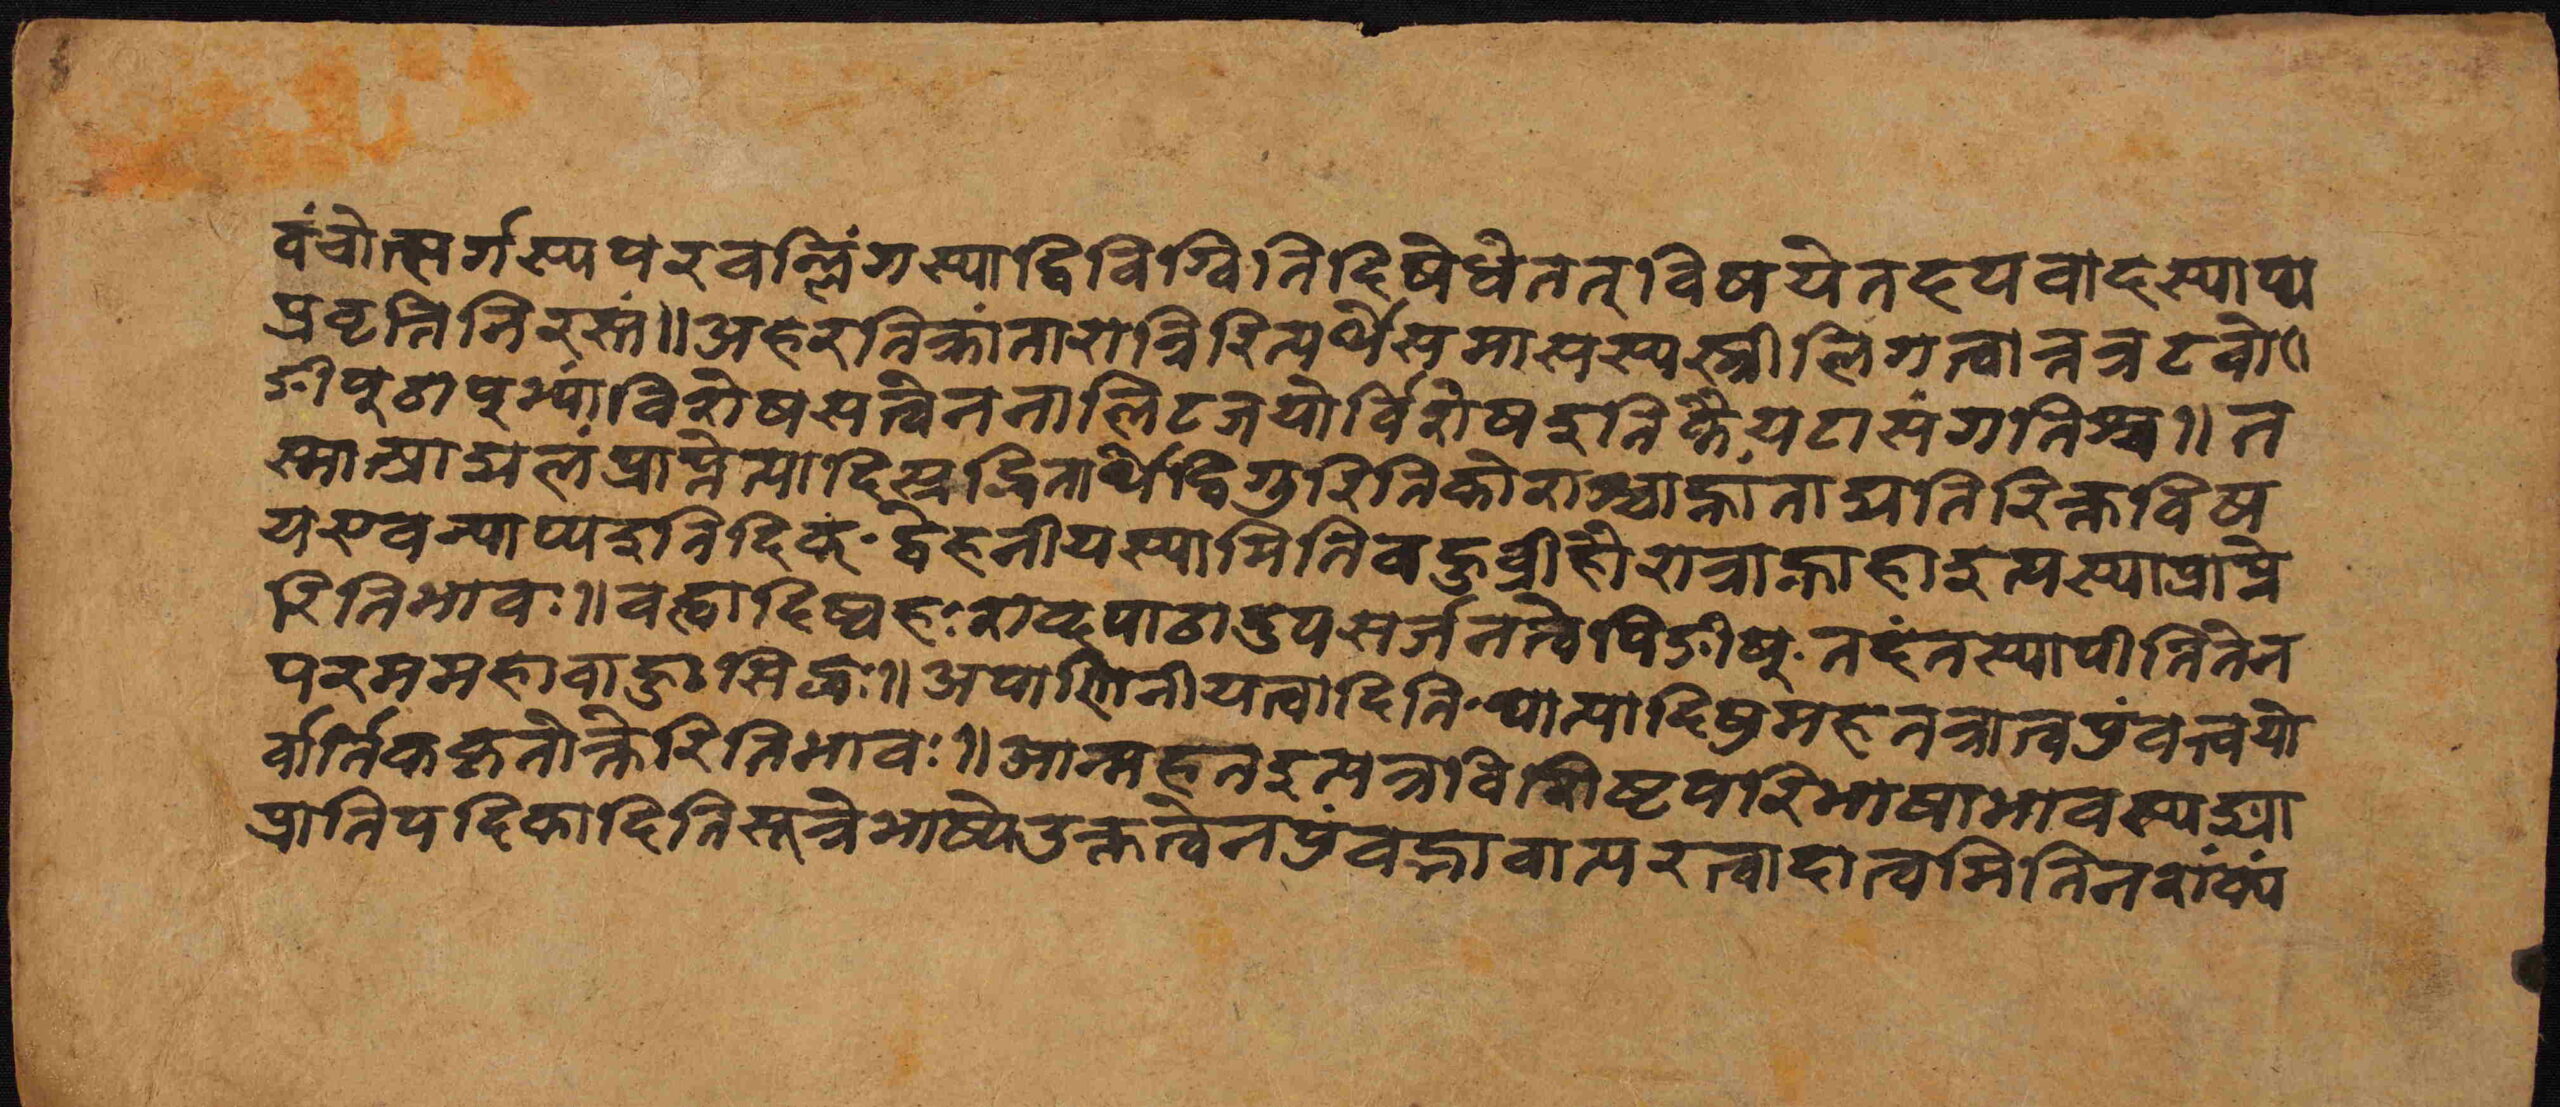 वंचोत्सर्गस्यपरवल्लिंगस्याद्विविग्वितिदिषेधेतत्विषयेतदपवादस्याप्य
प्रवृत्तिनिरस्तं॥अहरतिक्रांतारात्रिरित्यर्थेसमासस्यस्त्रीलिगत्वान्नत्रटचो॥
ङीप्ठाप्भ्यांविशेषसत्वेननालिटजयोर्विशेषइतिकैयटासंगतिश्च॥त
स्मात्प्राद्यलंप्राप्नेत्यादिस्तद्धितार्थेद्विगुरितिकोशश्चाह्नांताद्यतिरिक्तविष
यएवन्याप्यइतिदिक्॰द्वेहनीयस्यामितिबहुव्रीहौरात्राह्नाहाइत्यस्याप्राप्ने
रितिभावः॥बह्वादिष्वहःशब्दपाठादुपसर्जनत्वेपिङीष्॰तदंतस्यापीतितेन
परममहाबाहुःसिद्धः॥अपाणिनीयत्वादिति॰घात्यादिषुमहतत्रात्वपुंवत्त्वयो
र्वार्तिककृतोक्तेरितिभावः॥आन्महतइत्यत्रविशिष्टपरिभाषाभावस्यङ्या
प्रातिपदिकादितिसूत्रेभाष्येउक्तत्वेनपुंवद्भावात्परत्वादात्वमितिनशंक्यं